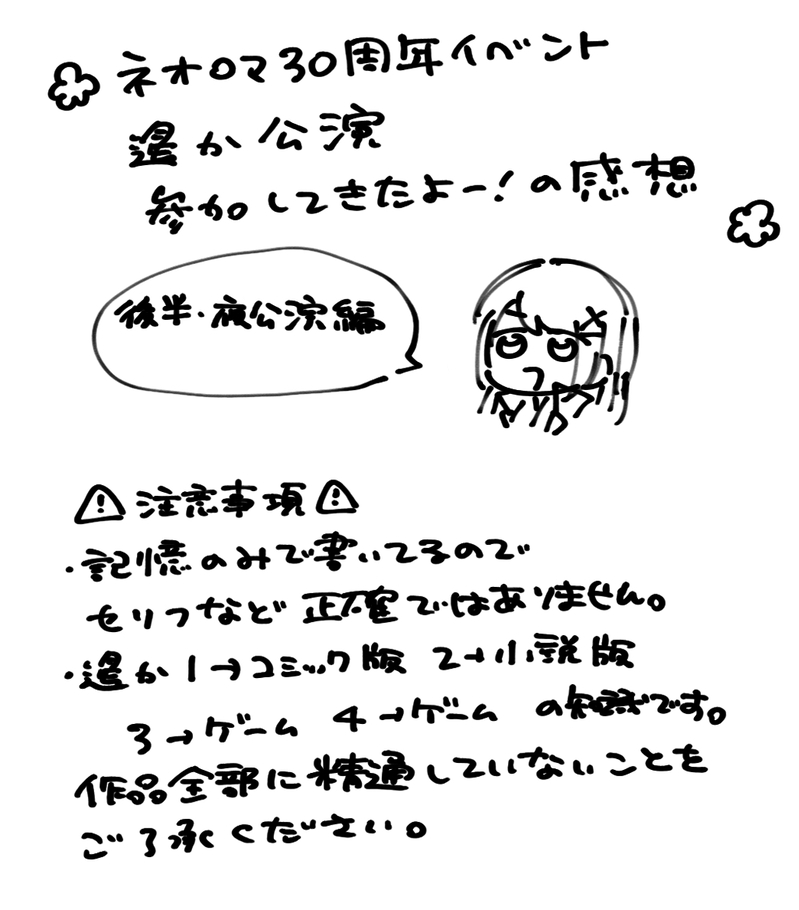 ネオロマ30周年イベント
遙か公演
参加してきたよー!の感想
後半・夜公演編
⚠注意事項⚠
・記憶のみで書いてるので
セリフなど正確ではありません。
・遙か1→コミック版 2→小説版
3→ゲーム 4→ゲーム の知識です。
作品全部に精通していないことを
ご了承ください。